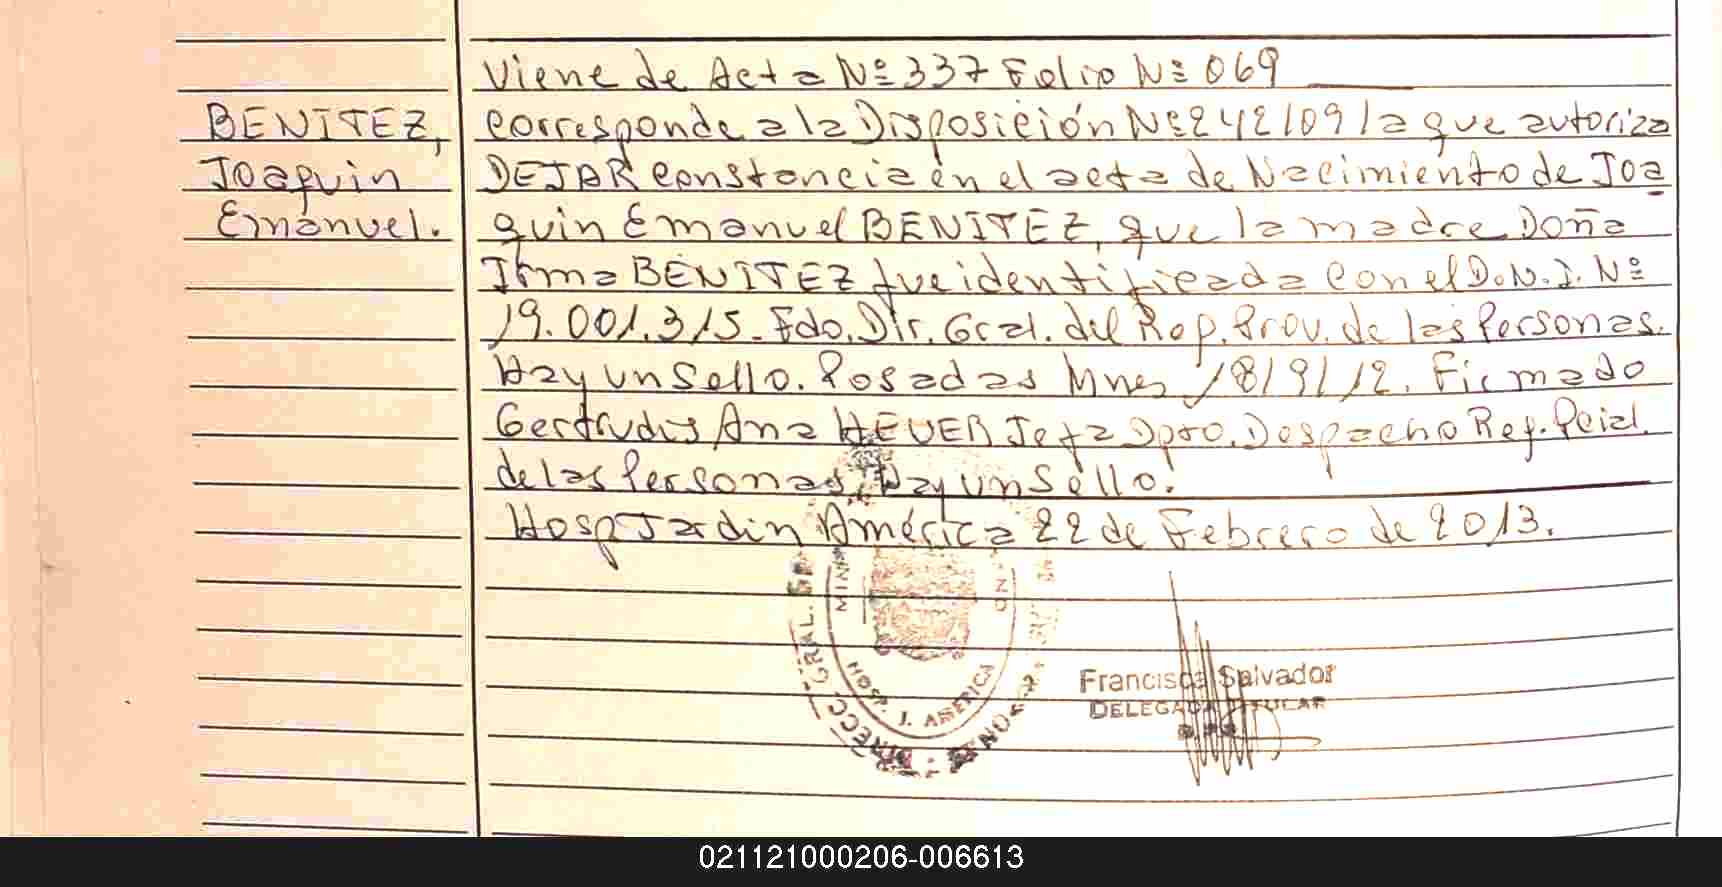 Viene de Acta Nº 337 Folio Nº 069
BENITEZ, corresponde a la Disposición Nº 242/09 la que autoriza
Joaquin DEJAR constancia en el acta de Nacimiento de Joa
Emanuel. quin Emanuel BENITEZ, que la madre Doña
Irma BENITEZ fue identificada con el D.N.I. Nº
19.001.315.- Fdo. Dir. Gral. del Rep. Prov. de las Personas.
Hay un Sello. Posadas Mnes 18/9/12. Firmado
Gertrudis Ana HEUER Jefa Dpto. Despacho Reg. Pcial.
de las Personas, Hay un Sello.
Hosp Jardin América 22 de Febrero de 2013.
DIRECC. GRAL.
HOSP. J. AMERICA
Francisca Salvador
DELEGADA TITULAR
021121000206-006613